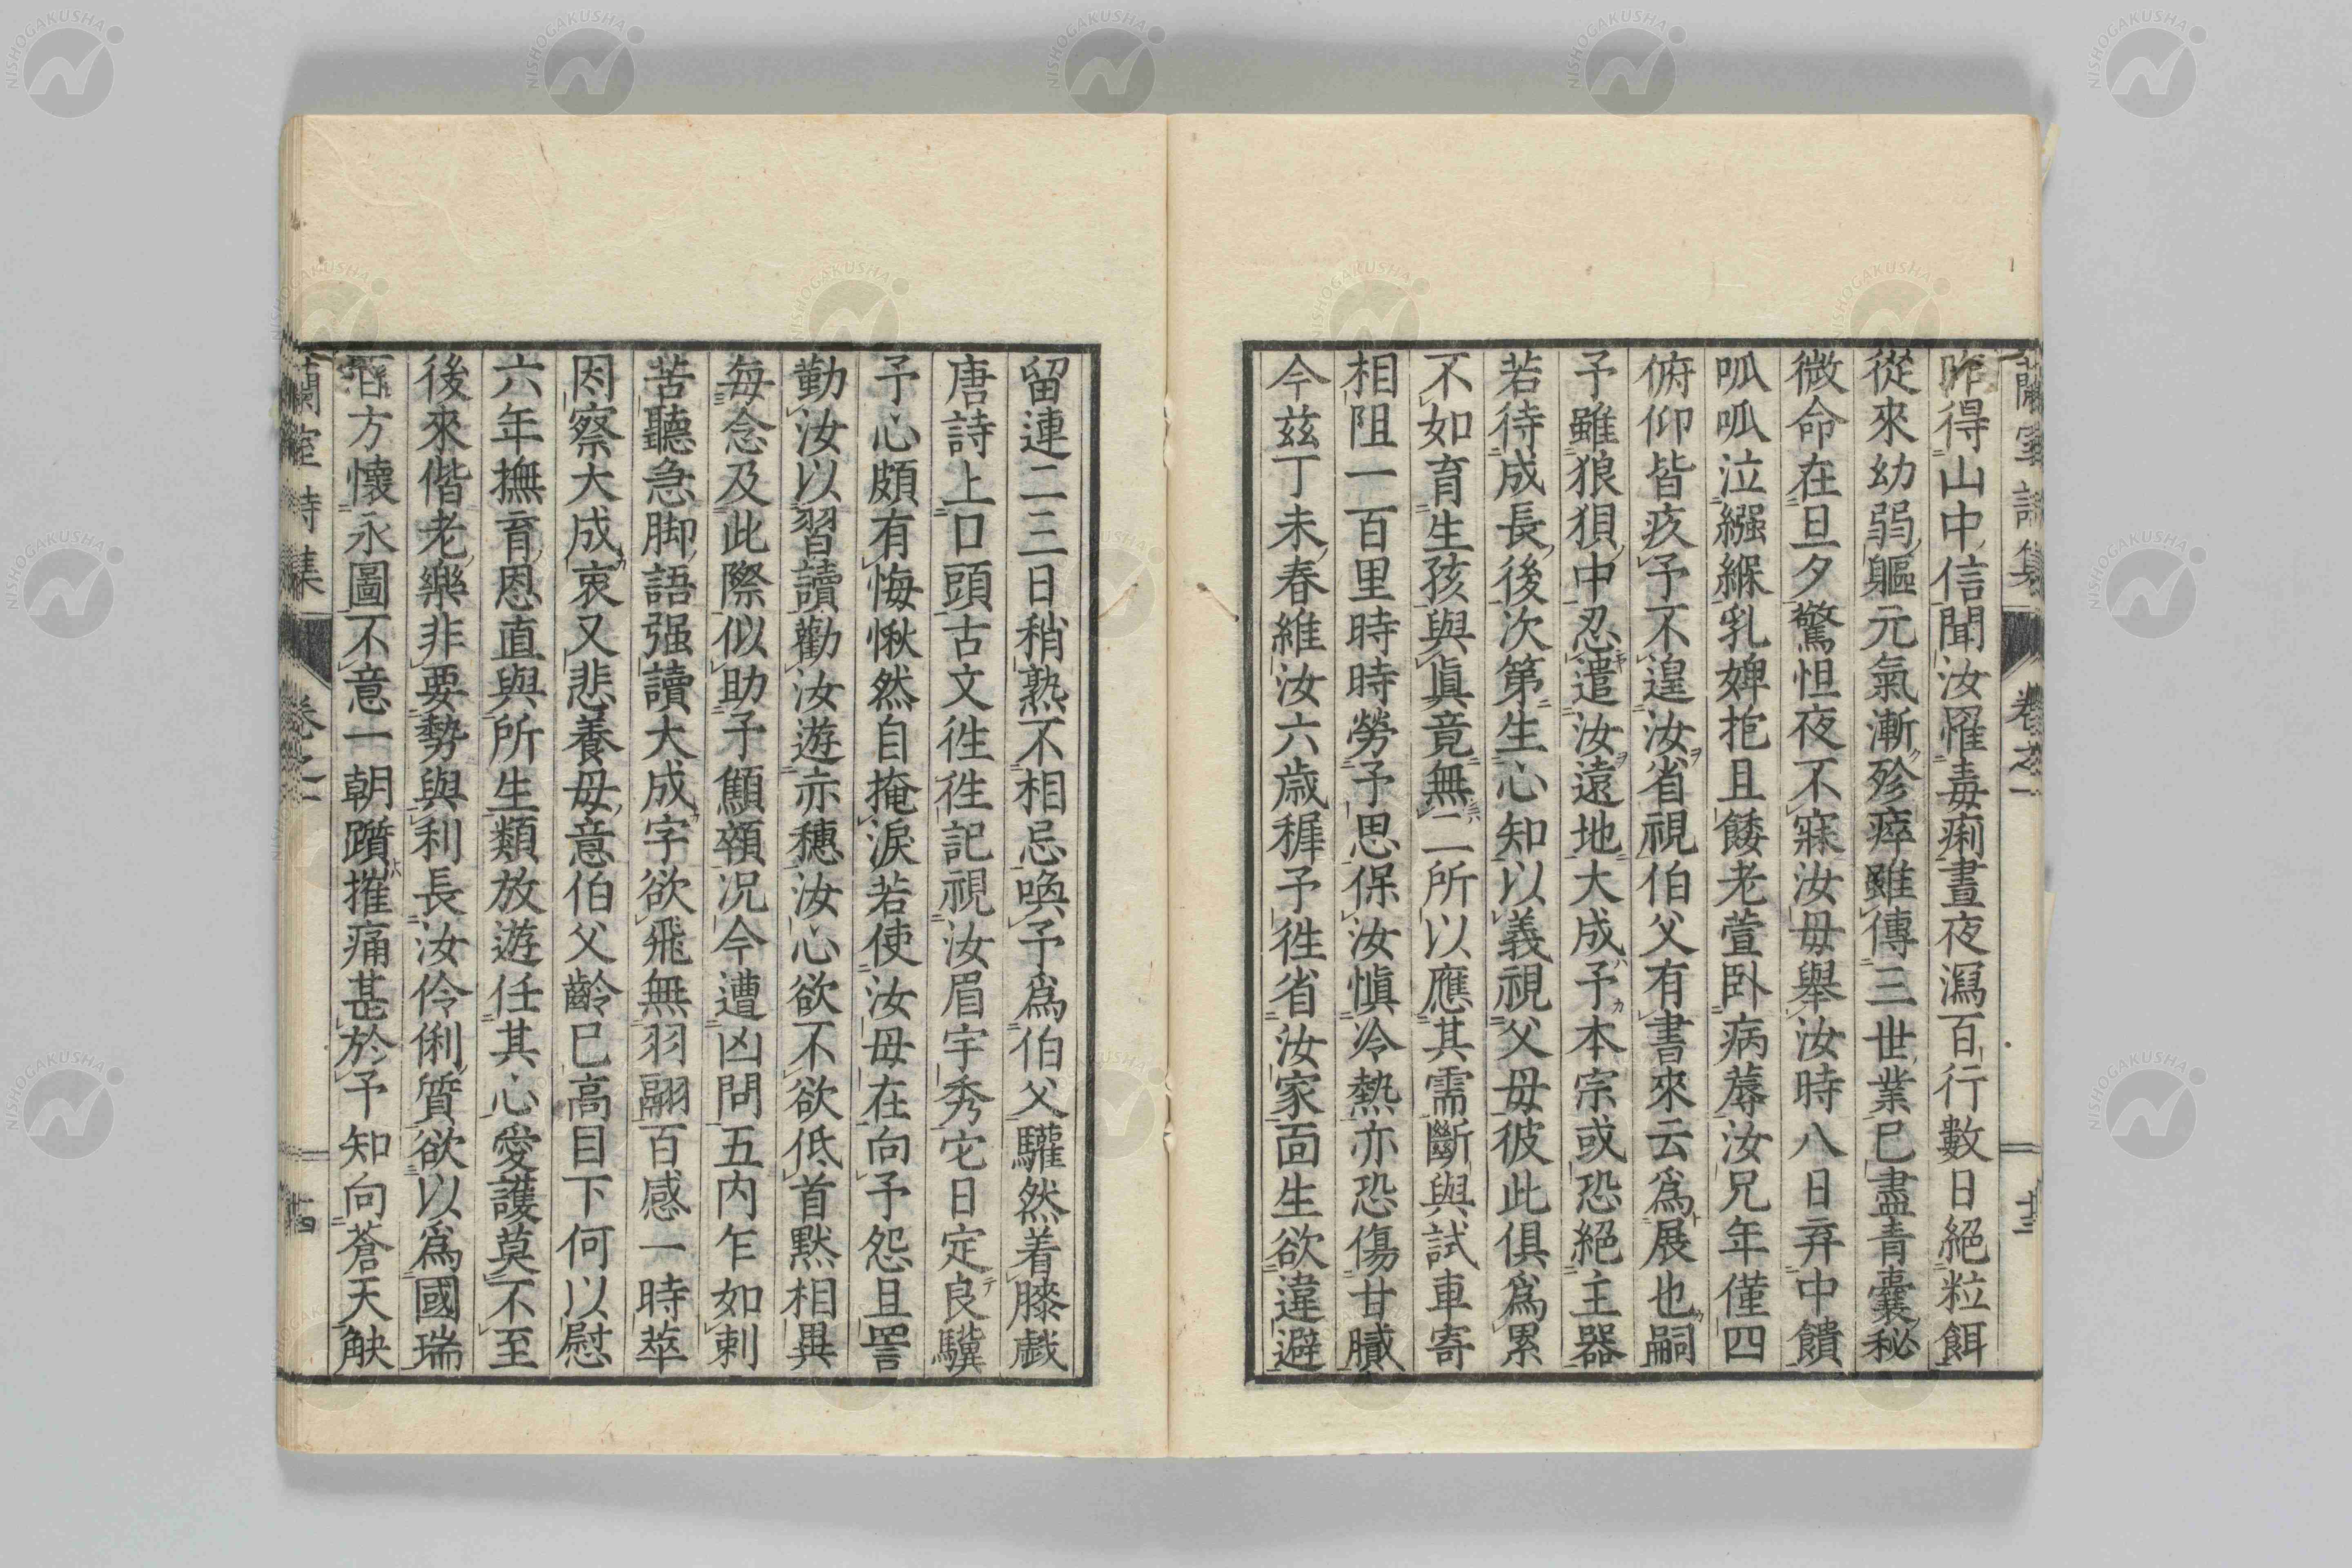 蘭室詩集 卷之一 十三
昨得山中信聞汝罹毒痢晝夜瀉百行數日絕粒餌
從來幼弱軀元氣漸殄瘁雖傳三世業已盡青囊秘
微命在旦夕驚怛夜不寐汝母舉汝時八日弃中饋
呱呱泣繦緥乳婢抱且餧老萱臥病蓐汝兄年僅四
俯仰皆疚予不遑汝省視伯父有書來云爲展也嗣
予雖狼狽中忍遣汝遠地大成予本宗或恐絕主器
若待成長後次第生心知以義視父母彼此俱爲累
不如育生孩與眞竟無二所以應其需斷與試車寄
相阻一百里時時勞予思保汝愼冷熱亦恐傷甘膩
今茲丁未春維汝六歲穉予徃省汝家面生欲違避
留連二三日稍熟不相忌喚予爲伯父驩然着膝戲
唐詩上口頭古文徃徃記視汝眉宇秀它日定良驥
予心頗有悔愀然自掩淚若使汝母在向予怨且詈
勤汝以習讀勸汝遊亦穗汝心欲不欲低首默相異
每念及此際似助予顦顇況今遭凶問五内乍如刺
苦聽急脚語强讀大成字欲飛無羽翮百感一時萃
因察大成哀又悲養母意伯父齡已高目下何以慰
六年撫育恩直與所生類放遊任其心愛護莫不至
後來偕老樂非要勢與利長汝伶俐質欲以爲國瑞
百方懷永圖不意一朝躓摧痛甚於予知向蒼天觖
蘭室詩集 卷之一 十四
NISHOGAKUSHA